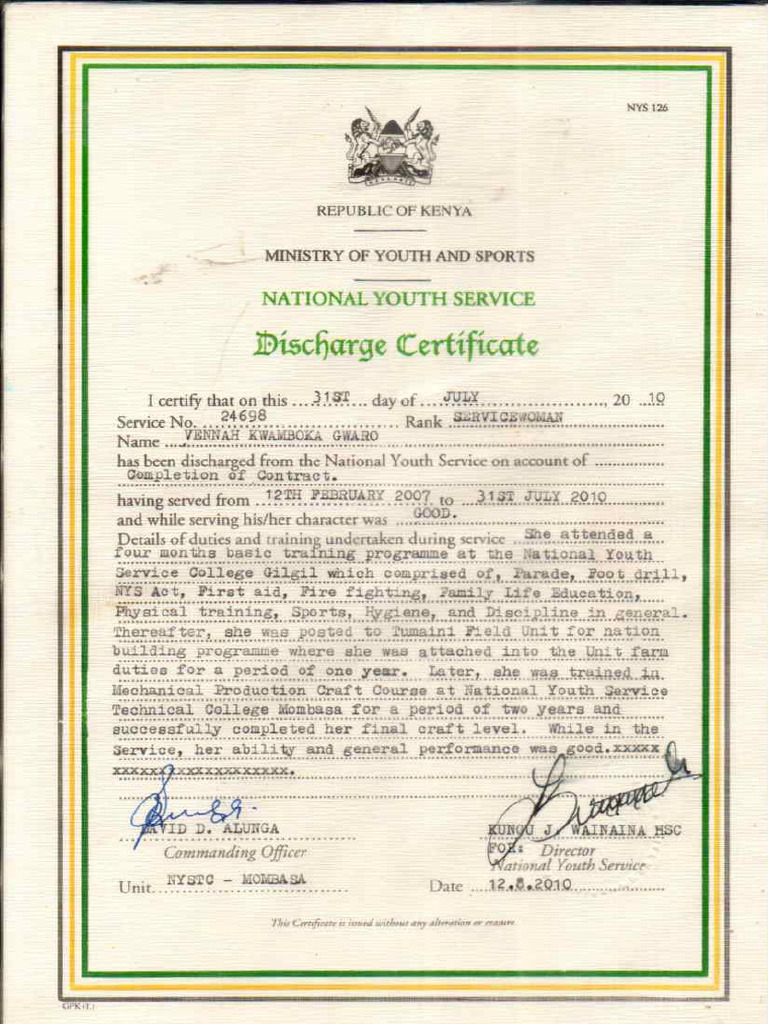 NYS 126
REPUBLIC OF KENYA
MINISTRY OF YOUTH AND SPORTS
NATIONAL YOUTH SERVICE
Discharge Certificate
I certify that on this ...31ST... day of ...JULY..................., 20 ..10
Service No. ...24698.................... Rank ..SERVICEWOMAN..........
Name ...VENNAH KWAMBOKA GWARO..........
has been discharged from the National Youth Service on account of ................
Completion of Contract.
having served from ..12TH FEBRUARY 2007 to ...31ST JULY 2010..........
and while serving his/her character was ...GOOD...........
Details of duties and training undertaken during service ..She attended a
four months basic training programme at the National Youth
Service College Gilgil which comprised of, Parade, Foot drill,
NYS Act, First aid, Fire fighting, Family Life Education,
Physical training, Sports, Hygiene, and Discipline in general.
Thereafter, she was posted to Tumaini Field Unit for nation
building programme where she was attached into the Unit farm
duties for a period of one year. Later, she was trained in
Mechanical Production Craft Course at National Youth Service
Technical College Mombasa for a period of two years and
successfully completed her final craft level. While in the
Service, her ability and general performance was good.xxxxx
xxxxxxxxxxxxxxxxxx.
DAVID D. ALUNGA KUNGU J. WAINAINA HSC
Commanding Officer FOR: Director
National Youth Service
Unit...NYSTC - MOMBASA.......... Date ...12.8.2010..........
This Certificate is issued without any alteration or erasure
GPK (L)